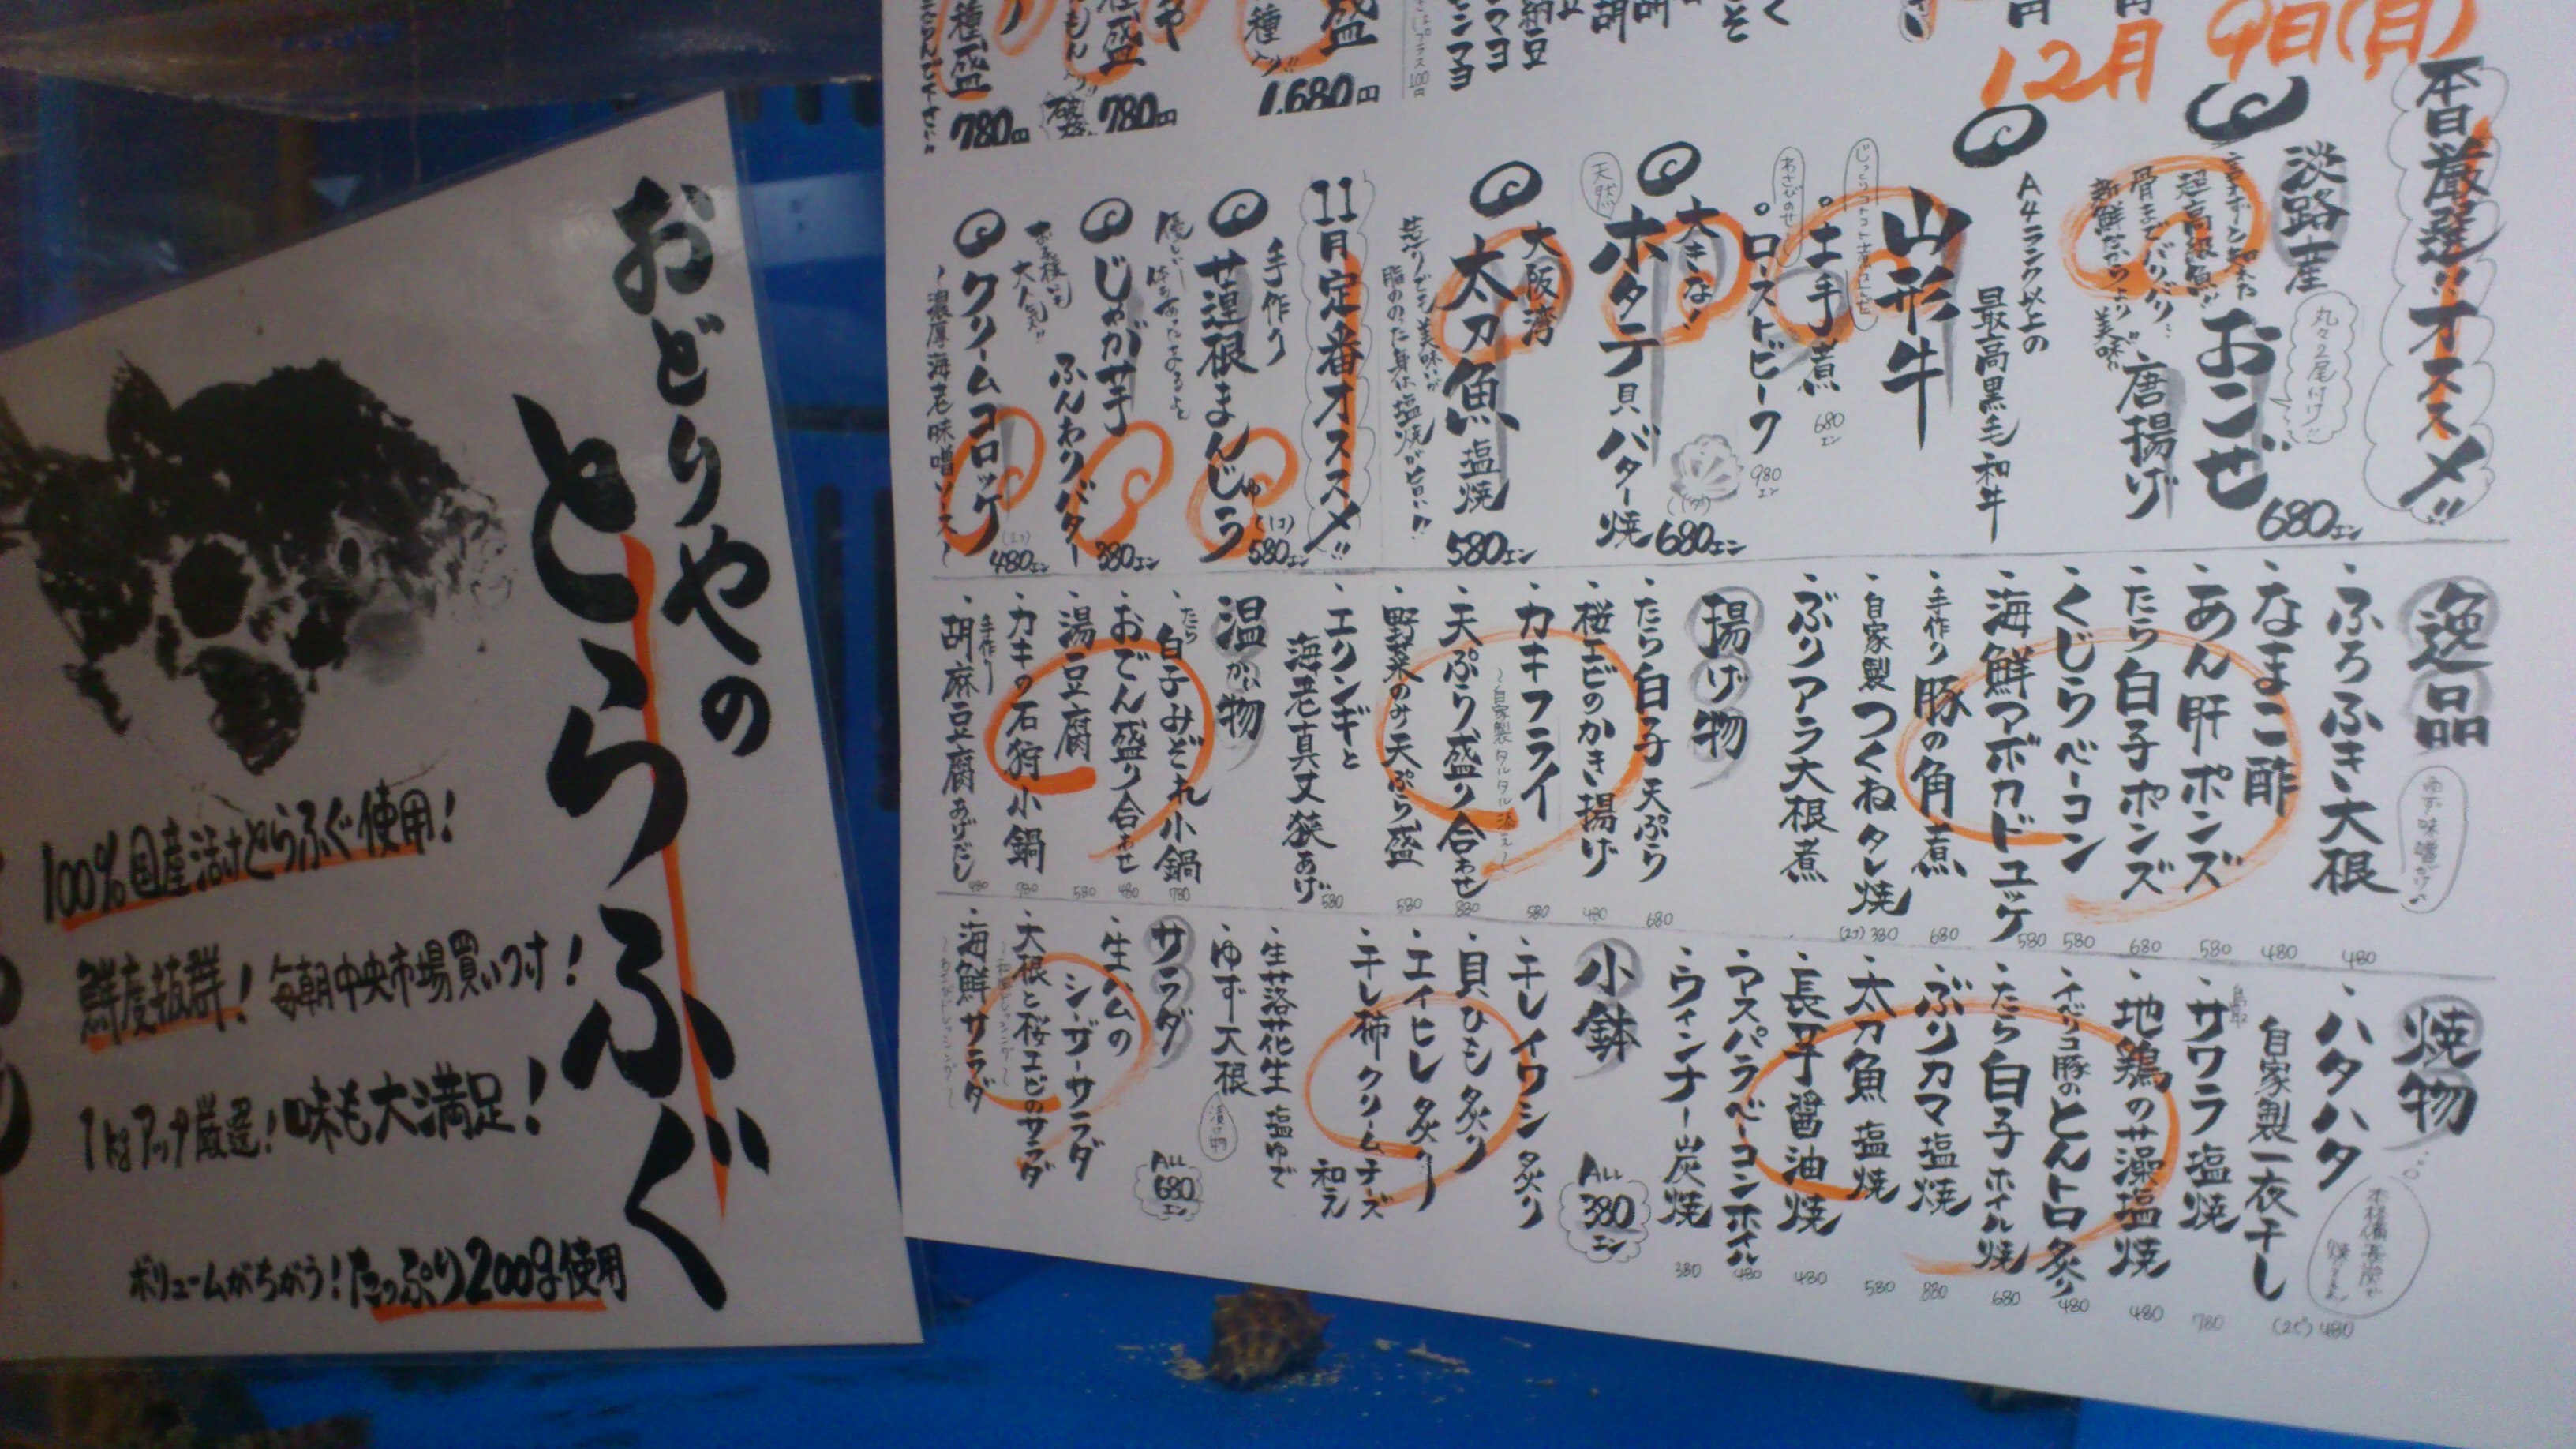 おどりやの
とらふぐ
100%国産活けとらふぐ使用!
鮮度抜群! 毎朝中央市場買いつけ!
1kgアップ厳選! 味も大満足!
ボリュームがちがう! たっぷり200g使用
12月 9日(月)
本日厳選!!オススメ!!
淡路産
おこぜ
丸々2尾付け!!
言わずと知れた
超高級魚!!
骨までバリバリ!!
新鮮だからより美味!!
唐揚げ
680エン
A4ランク以上の
最高黒毛和牛
山形牛
土手煮
680エン
わさびのせ
ローストビーフ
980エン
大きな!
天然!!
ホタテ貝バター焼
(1ケ)
680エン
大阪湾
太刀魚 塩焼
580エン
11月定番オススメ!!
手作り
蓮根まんじゅう
(1コ)
580エン
じゃが芋
ふんわりバター
380エン
お子様にも
大人気!!
クリームコロッケ
〜濃厚海老味噌ソース〜
(2コ)
480エン
1,680円
780円
780円
逸品
・ふろふき大根
480
・なまこ酢
480
・あん肝ポンズ
580
・たら白子ポンズ
680
・くじらベーコン
580
・海鮮アボカドユッケ
580
・手作り 豚の角煮
680
・自家製つくねタレ焼
(2ケ)380
・ぶりアラ大根煮
揚げ物
・たら白子天ぷら
680
・桜エビのかき揚げ
480
・カキフライ
〜自家製タルタル添え〜
580
・天ぷら盛り合わせ
880
・野菜のみ天ぷら盛
580
・エリンギと
海老真丈挟あげ
580
温かい物
・たら白子みぞれ小鍋
780
・おでん盛り合わせ
480
・湯豆腐
580
・カキの石狩小鍋
780
・手作り
胡麻豆腐あげだし
480
焼物
・ハタハタ
自家製一夜干し
(2ピ)480
・鳥取 サワラ塩焼
780
・地鶏の藻塩焼
480
・イベリコ豚のとんトロ炙り
480
・たら白子ホイル焼
680
・ぶりカマ塩焼
880
・太刀魚 塩焼
580
・長芋醤油焼
480
・アスパラベーコンホイル
480
・ウィンナー炭焼
380
小鉢
ALL
380
エン
・干しイワシ炙り
・貝ひも炙り
・エイヒレ炙り
・干し柿クリームチーズ
和え
・生落花生 塩ゆで
・ゆず大根
漬け物
サラダ
ALL
680
エン
・生ハムの
シーザーサラダ
・大根と桜エビのサラダ
・海鮮サラダ